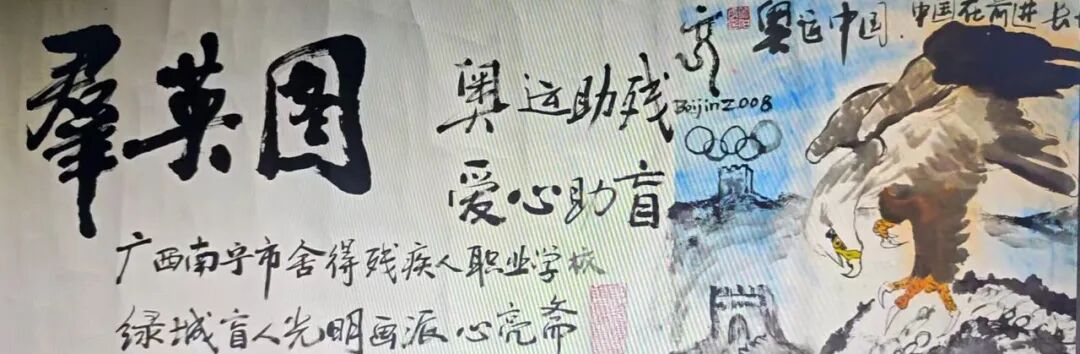 羣英图
奥运助残
爱心助盲
广西南宁市舍得残疾人职业学校
绿城盲人光明画派 心亮斋
奥运中国.中国在前进
Beijin2008